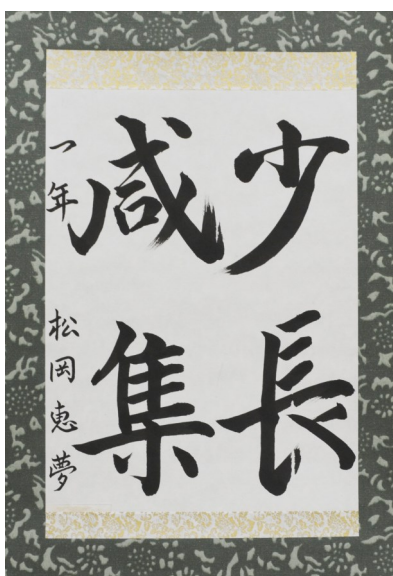 少長
咸集
一年 松岡恵夢